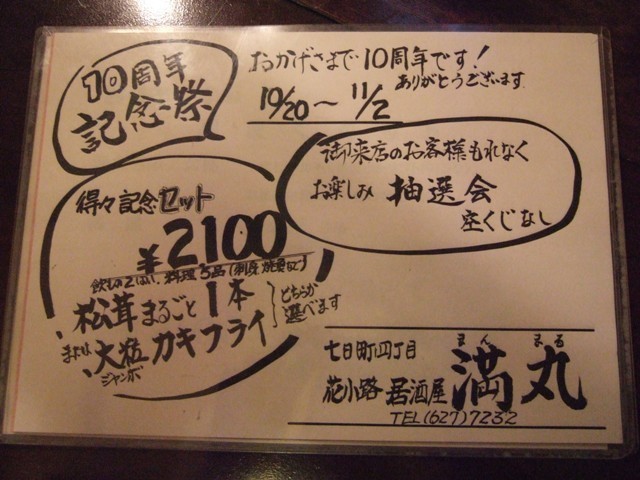 10周年
記念祭
おかげさまで10周年です!
ありがとうございます
10/20～11/2
御来店のお客様もれなく
お楽しみ 抽選会
空くじなし
得々記念セット
¥2100
飲もの2はい、料理3品(刺身 焼魚など)
松茸まるごと1本
または 大粒カキフライ
ジャンボ
どちらか
選べます
七日町四丁目
まん まる
花小路 居酒屋 満丸
TEL(627)7232